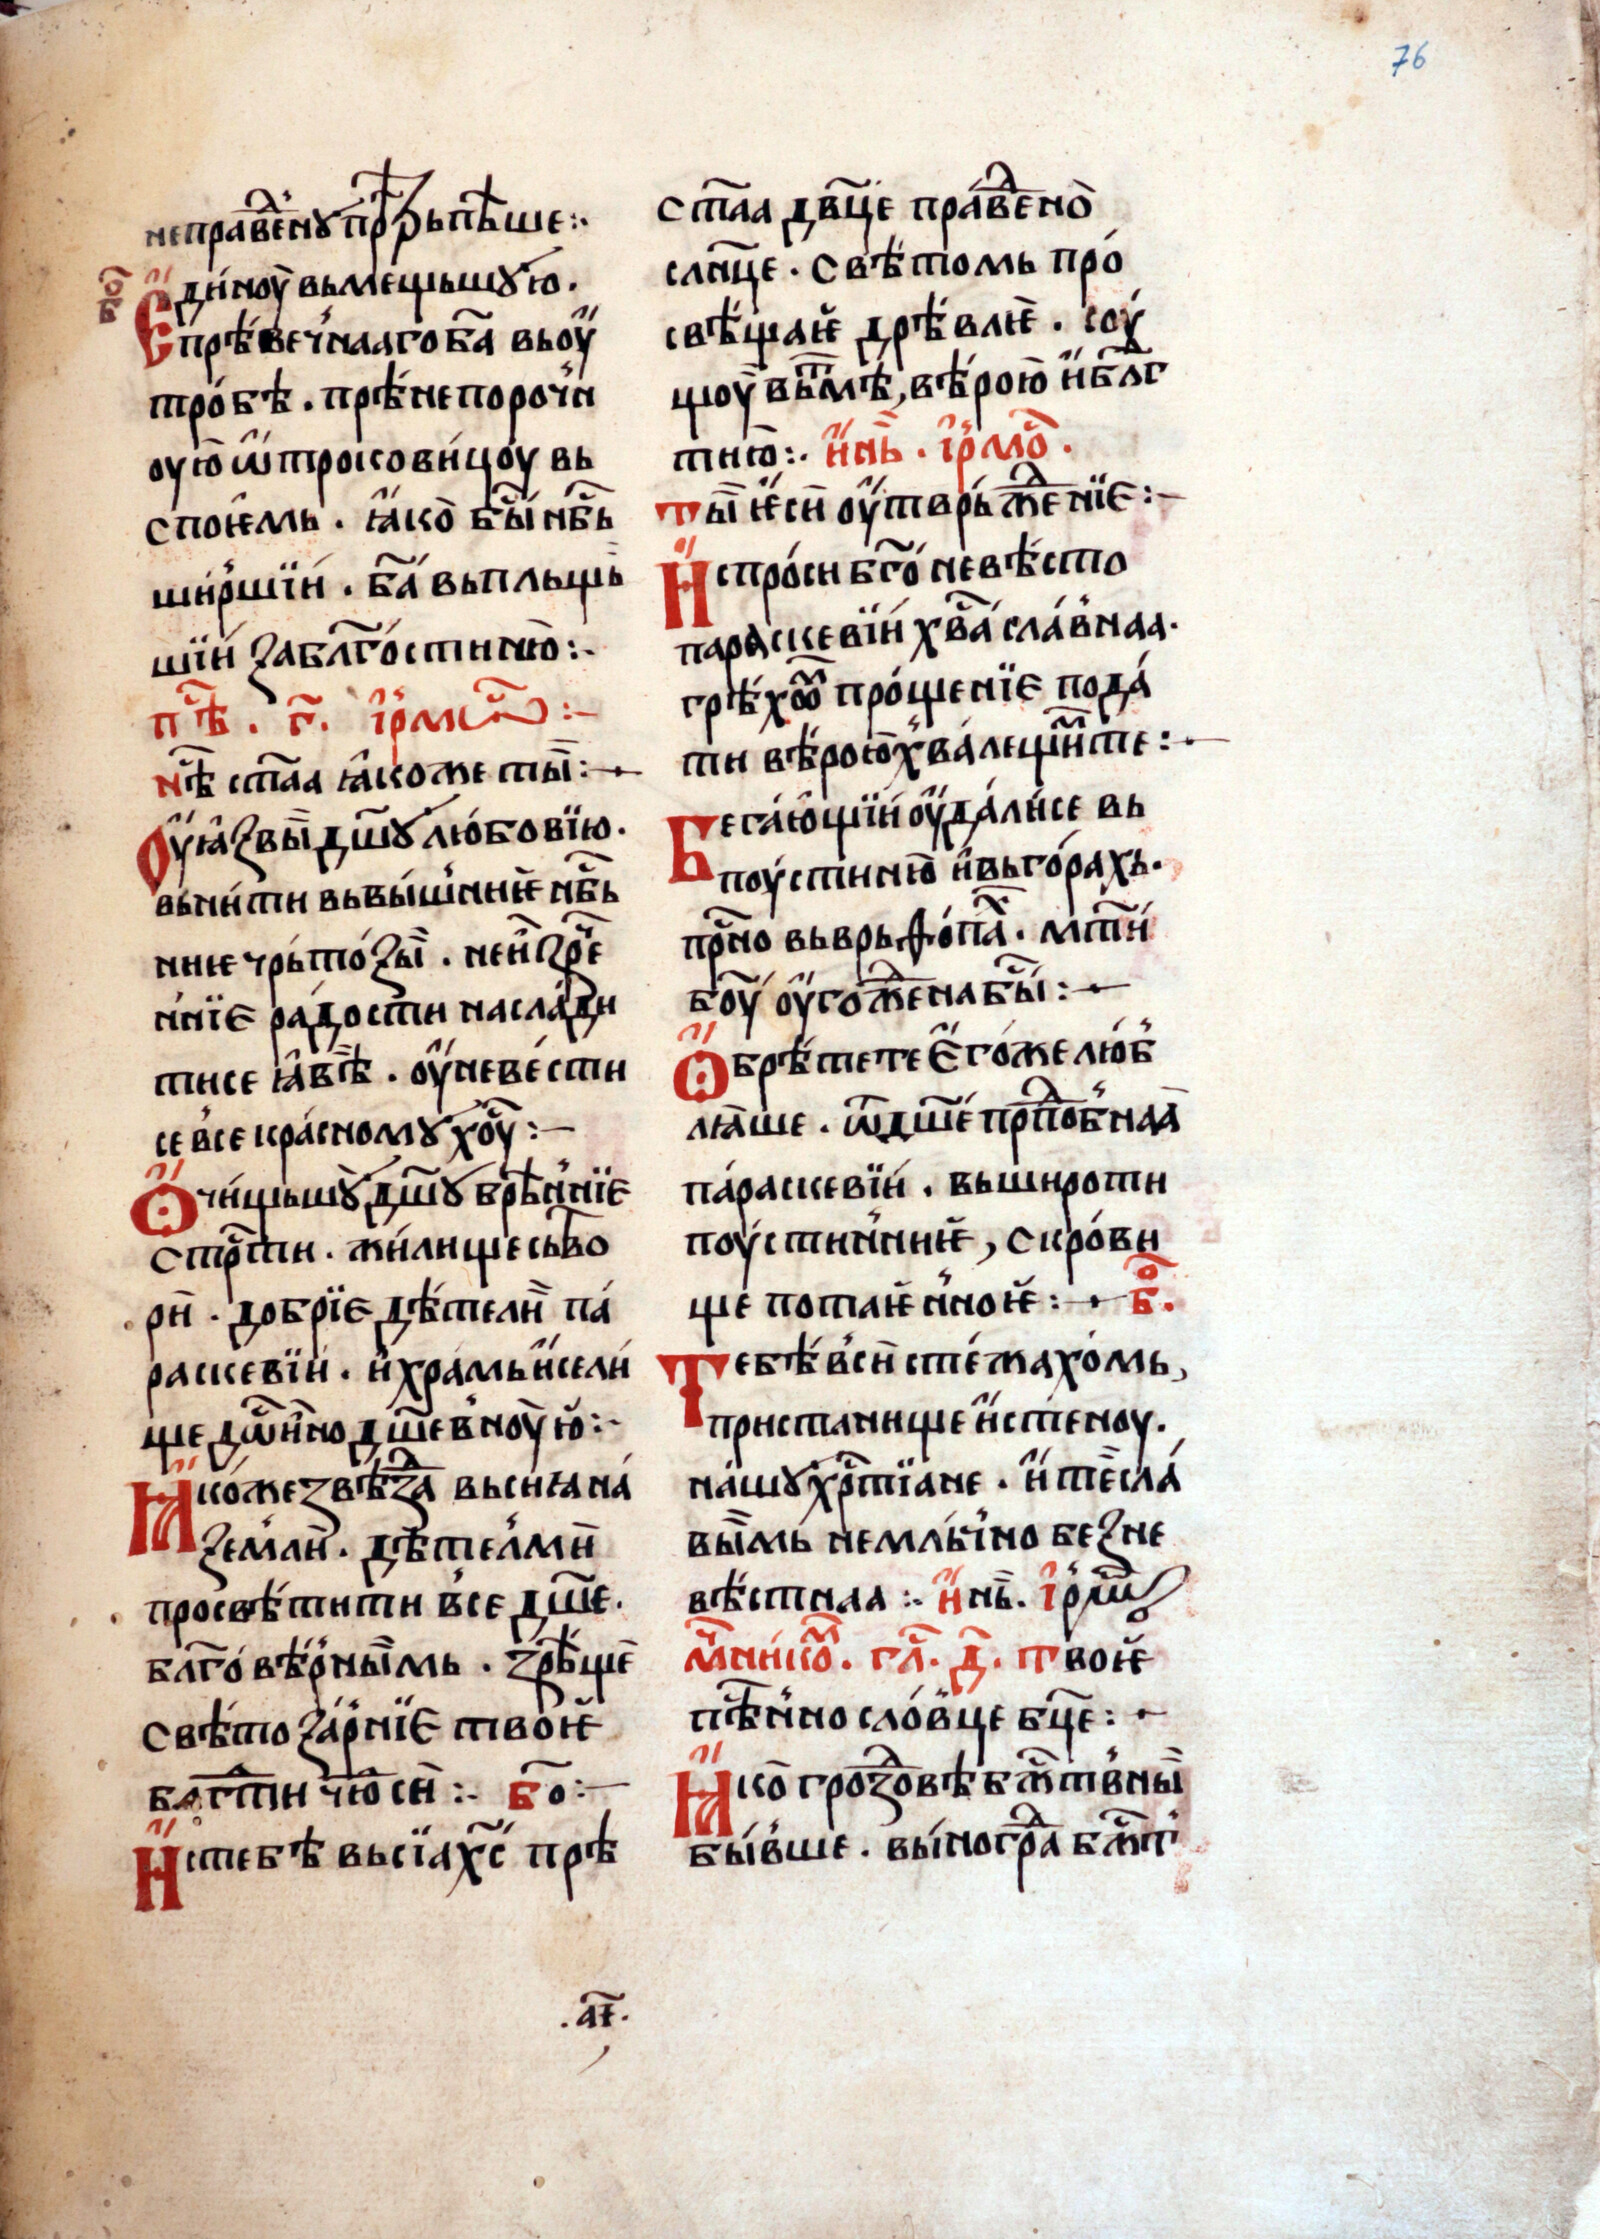 76
неправе́нꙋ прѣ́зрьпѣвше:·
бо҃
Єди́ноу вьмещьшꙋю.
прѣ́вечнааго ба҃ вьоу
тро́бѣ. прѣ́непороч꙽н
оую ѡ҆троковн́цоу вь
спои҆ѥмь. ꙗ҆ко бы́ нб҃ь
шнр꙽шїн. ба҃ вьпльщь
шїн за бл҃го́стнню:·
пѣ҃. г҃. і҆рмѡс:–
нѣ҃ ст҃аа ꙗ҆коже ты̀:–
Оу҆ꙗ҆звы̀ дш҃ꙋ лю́бовїю.
вьнн́тн вь вы́шнѥ нб҃ь
ннѥ чрьто́зы̀. неи҆зре́
н꙽нїє ра́достн насладн
тнсе ꙗ҆вѣ̀. оу҆неве́стн
се в꙽се кра́сномꙋ хо҃у:–
Ѻ҆чн́щьшꙋ дш҃ꙋ врѣ́н꙽нїє
стр҃тн. жн́лнще сьво
рн̀. до́брїє дѣ́телн̀ па́
раскевїн. н҆ хра́мь н҆селн
ще дѡ҃н́но дш҃ев꙽ноую:·
Ꙗ҆ко́же звѣ́зда вьснꙗ на́
земл꙽н. дѣ́тел꙽мн
просвѣ́тнтн в꙽се дш҃е.
бл҃гове́р꙽ны̀мь. зрѣ́ще
свѣ́тоза́р꙽нїє твоѥ҆
бл҃гтн чю̀сн:· бо҃:–
Н҆стебѣ вьсїа х҃с прѣ
ст҃аа дв҃це пра́ве́но
слн҃це. свѣ́томь про́
свѣ́щаѥ҆ дрѣ́влѥ. соу́
щоу вьтмѣ, вѣ́рою н҆ бл҃г
тню:· н҆нь. і҆рмо҃.
ты̀ ѥ҆сн оу҆тврьже́нїє:–
Н҆спро́сн бг҃о́невѣ́сто
параскевїн х҃ва сла́в꙽наа.
грѣ́хѡ про́щенїє пода́
тн вѣ́рою х꙽ва́лещн̀мте:–
Бега́ю҆щїн оу҆да́лнсе вь
поустн́ню н҆ вьго́рахь.
пр҃но вьврьѳо́па. мт҃н
боу҃ оу҆го́жена бы̀:–
Ѻ҆брѣ́тете Є҆го́же лю́б꙽
лꙗ҆ше. ѿ дш҃е прпⷣоб꙽наа
па́раскевїн. вьшнротн
поустн́н꙽нѥ, скро́вн
ще потаѥ҆н꙽ноѥ:– б҃о.
Тебѣ́ в꙽сн сте́жахо́мь,
прнстаннще н҆ сте́ноу.
на́шꙋ хр҃тїане. н҆ тѐ сла́
вы̀мь немльч꙽но безне
вѣ́стнаа:· н҆нь. і҆рмѡс
мч҃нко҃. гл҃. д҃. твоѥ҆
пѣ́сн꙽носло́в꙽це бц҃е:–
Ꙗ҆ко̀ грозо́вѣ бж҃тв꙽ны̀
бы́в꙽ше. вы́нограⷣа бж҃т꙽
.а҃і.